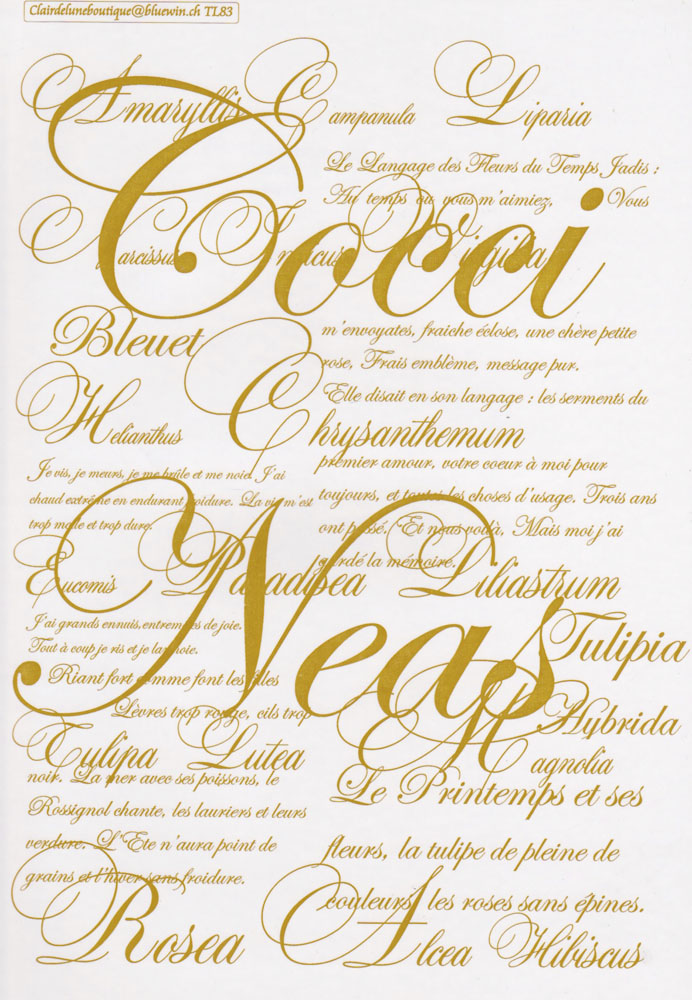 Clairdeluneboutique@bluewin.ch TL83
Amaryllis Campanula Liparia
Cocci
Le Langage des Fleurs du Temps Jadis :
Au temps où vous m'aimiez, Vous
Narcissus Virgilia
m'envoyates, fraiche éclose, une chère petite
rose, Frais emblème, message pur.
Bleuet
Elle disait en son langage : les serments du
Helianthus Chrysanthemum
premier amour, votre coeur à moi pour
toujours, et toutes les choses d'usage. Trois ans
ont passé. Et nous voilà, Mais moi j'ai
gardé la mémoire.
Je vis, je meurs, je me brûle et me noie. J'ai
chaud extrême en endurant froidure. La vie m'est
trop molle et trop dure.
Eucomis Paradisea Liliastrum
Neas
J'ai grands ennuis, entremelés de joie.
Tout à coup je ris et je larmoie.
Tulipia
Riant fort comme font les filles
Lèvres trop rouge, cils trop
Hybrida
Tulipa Lutea Magnolia
noir. La mer avec ses poissons, le
Rossignol chante, les lauriers et leurs
verdure. L'Ete n'aura point de
grains et l'hiver sans froidure.
Le Printemps et ses
fleurs, la tulipe de pleine de
couleurs, les roses sans épines.
Rosea Alcea Hibiscus